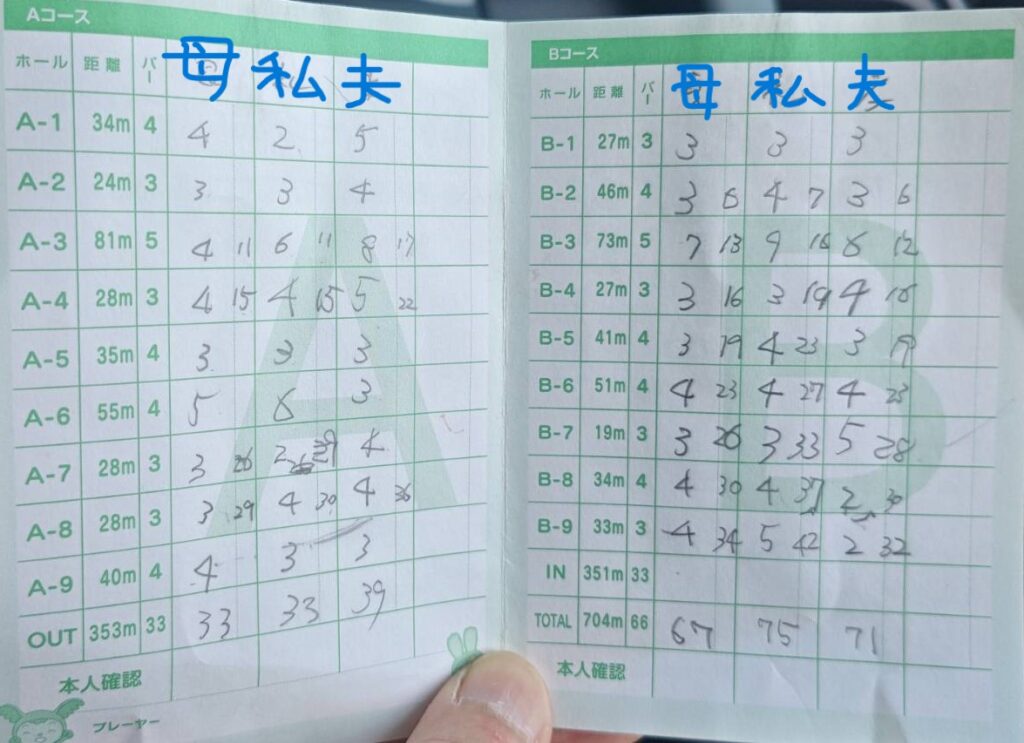 Aコース
ホール 距離 パー 母 私 夫
A-1 34m 4 4 2 5
A-2 24m 3 3 3 4
A-3 81m 5 4 11 6 11 8 17
A-4 28m 3 4 15 4 15 5 22
A-5 35m 4 3 3 3
A-6 55m 4 5 6 3
A-7 28m 3 3 26 2 4
A-8 28m 3 3 29 4 30 4 36
A-9 40m 4 4 3 3
OUT 353m 33 33 33 39
本人確認
プレーヤー
Bコース
ホール 距離 パー 母 私 夫
B-1 27m 3 3 3 3
B-2 46m 4 3 6 4 7 3 6
B-3 73m 5 7 13 9 16 6 12
B-4 27m 3 3 16 3 19 4 16
B-5 41m 4 3 19 4 23 3 19
B-6 51m 4 4 23 4 27 4 23
B-7 19m 3 3 26 3 33 5 28
B-8 34m 4 4 30 4 37 2 30
B-9 33m 3 4 34 5 42 2 32
IN 351m 33
TOTAL 704m 66 67 75 71
本人確認